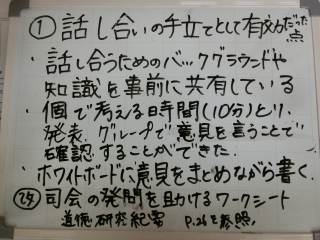 ① 話し合いの手立てとして有効だった点
・話し合うためのバックグラウンドや
知識を事前に共有している
・個で考える時間(10分)とり、
発表、グループで意見を言うことで
確認することができた。
・ホワイトボードに意見をまとめながら書く.
司会の発問を助けるワークシート
道徳研究紀要 P.26を参照,